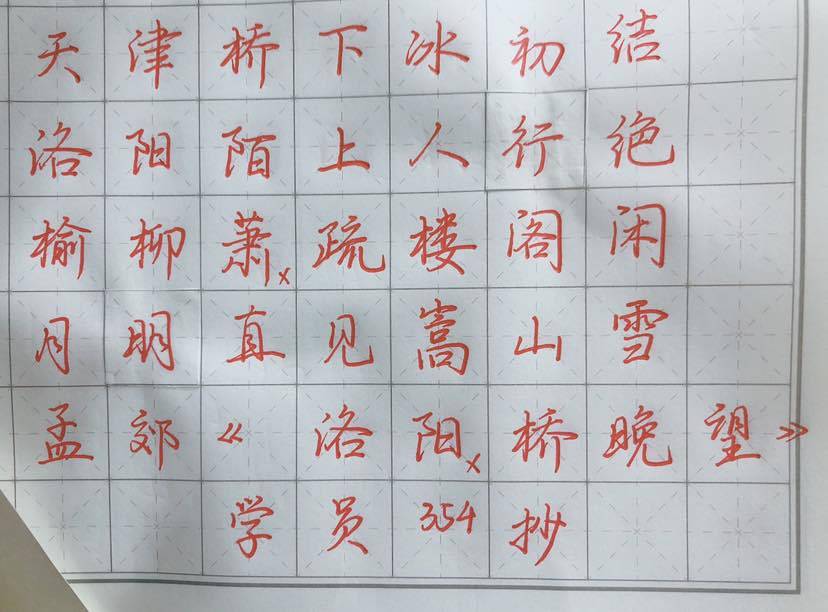 天津桥下冰初结
洛阳陌上人行绝
榆柳萧x疏楼阁闲
月明直见嵩山雪
孟郊《洛阳x桥晚望》
学员354抄